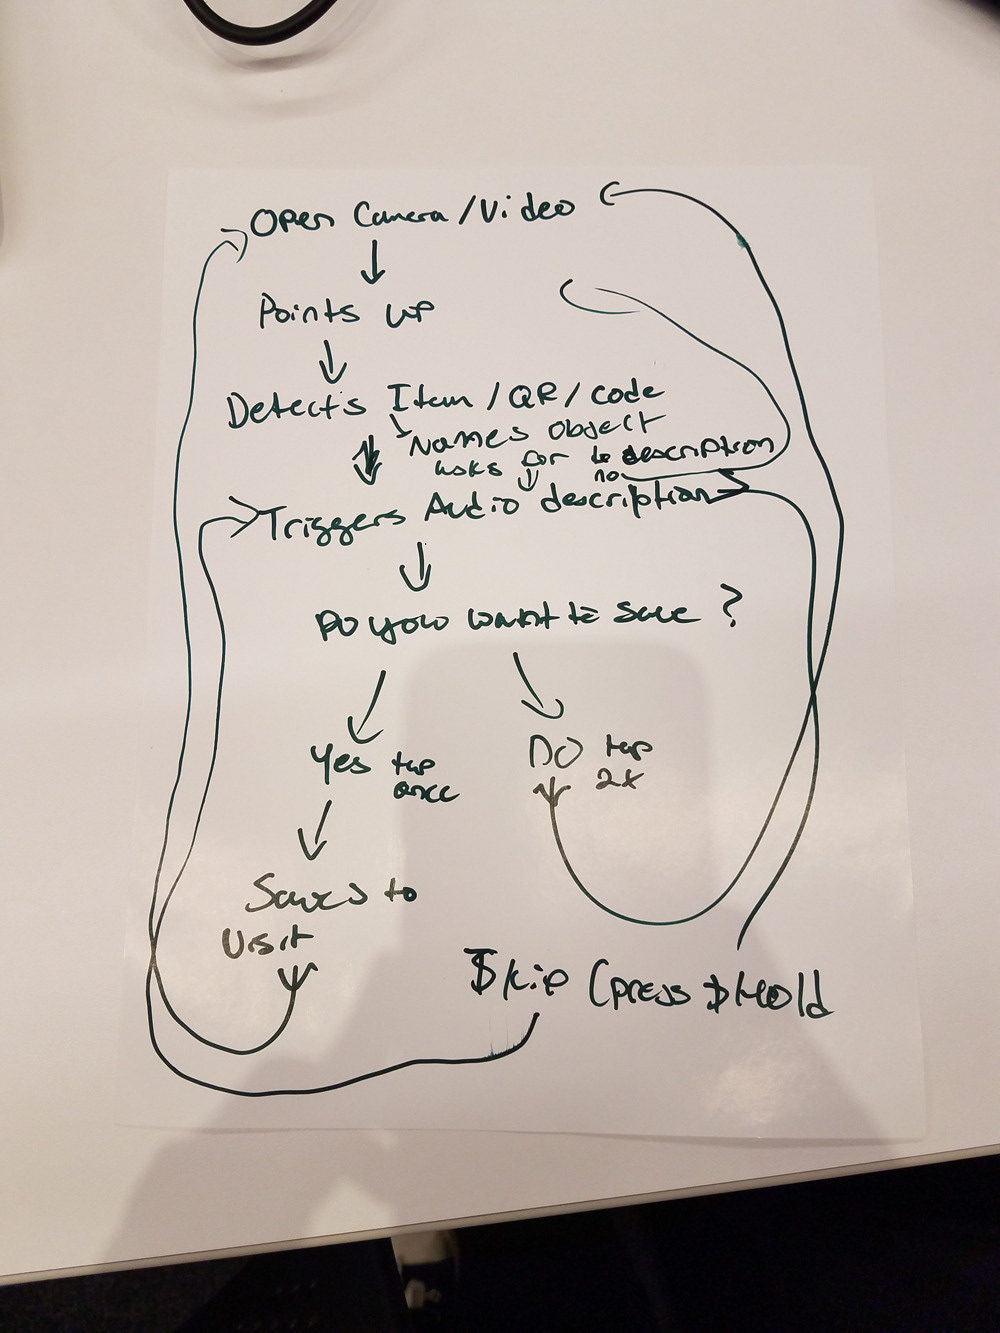 Open Camera / Video
Points up
Detects Item / QR / code
Names object
asks for description
no
Triggers Audio description
Do you want to save ?
Yes tap once
NO tap 2x
Saves to
Visit
Skip (press & Hold